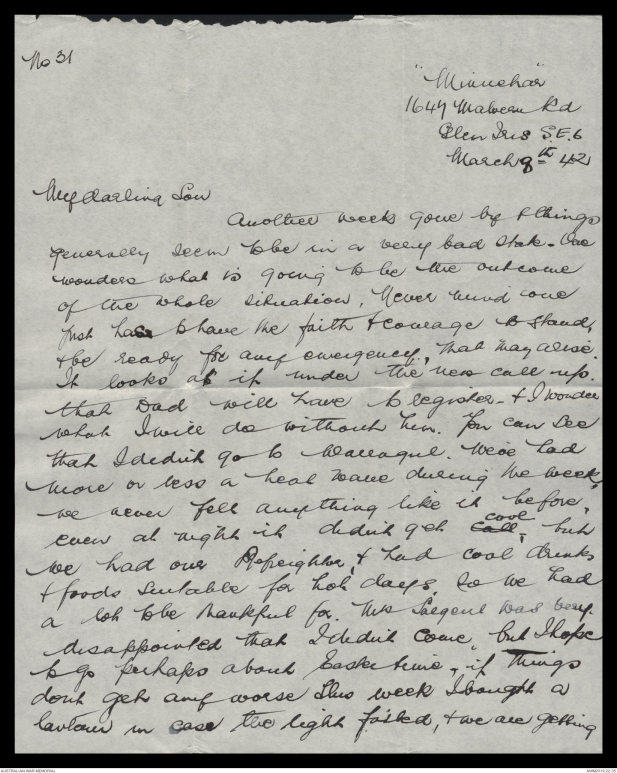 No 31
"Minnehar"
1647 Malvern Rd
Glen Iris S.E.6
March 8th 42
My darling Son
Another weeks gone by & things
generally seem to be in a very bad state - One
wonders what is going to be the outcome
of the whole situation, Never mind one
just has to have the faith & courage to stand,
& be ready for any emergency, that may arise.
It looks as if under the new call ups.
that Dad will have to register - & I wonder
what I will do without him. You can see
that I didnt go to Warragul. We've had
more or less a heat wave during the week,
we never felt anything like it before,
even at night it didnt get call cool, but
we had our Refreightor, & had cool drinks
& foods suitable for hot days, so we had
a lot to be thankful for. Mrs Sargent was very.
disappointed that I didnt come, but I hope
to go perhaps about Easter time, if things
dont get any worse This week I bought a
lantern in case the light failed, & we are getting
AUSTRALIAN WAR MEMORIAL